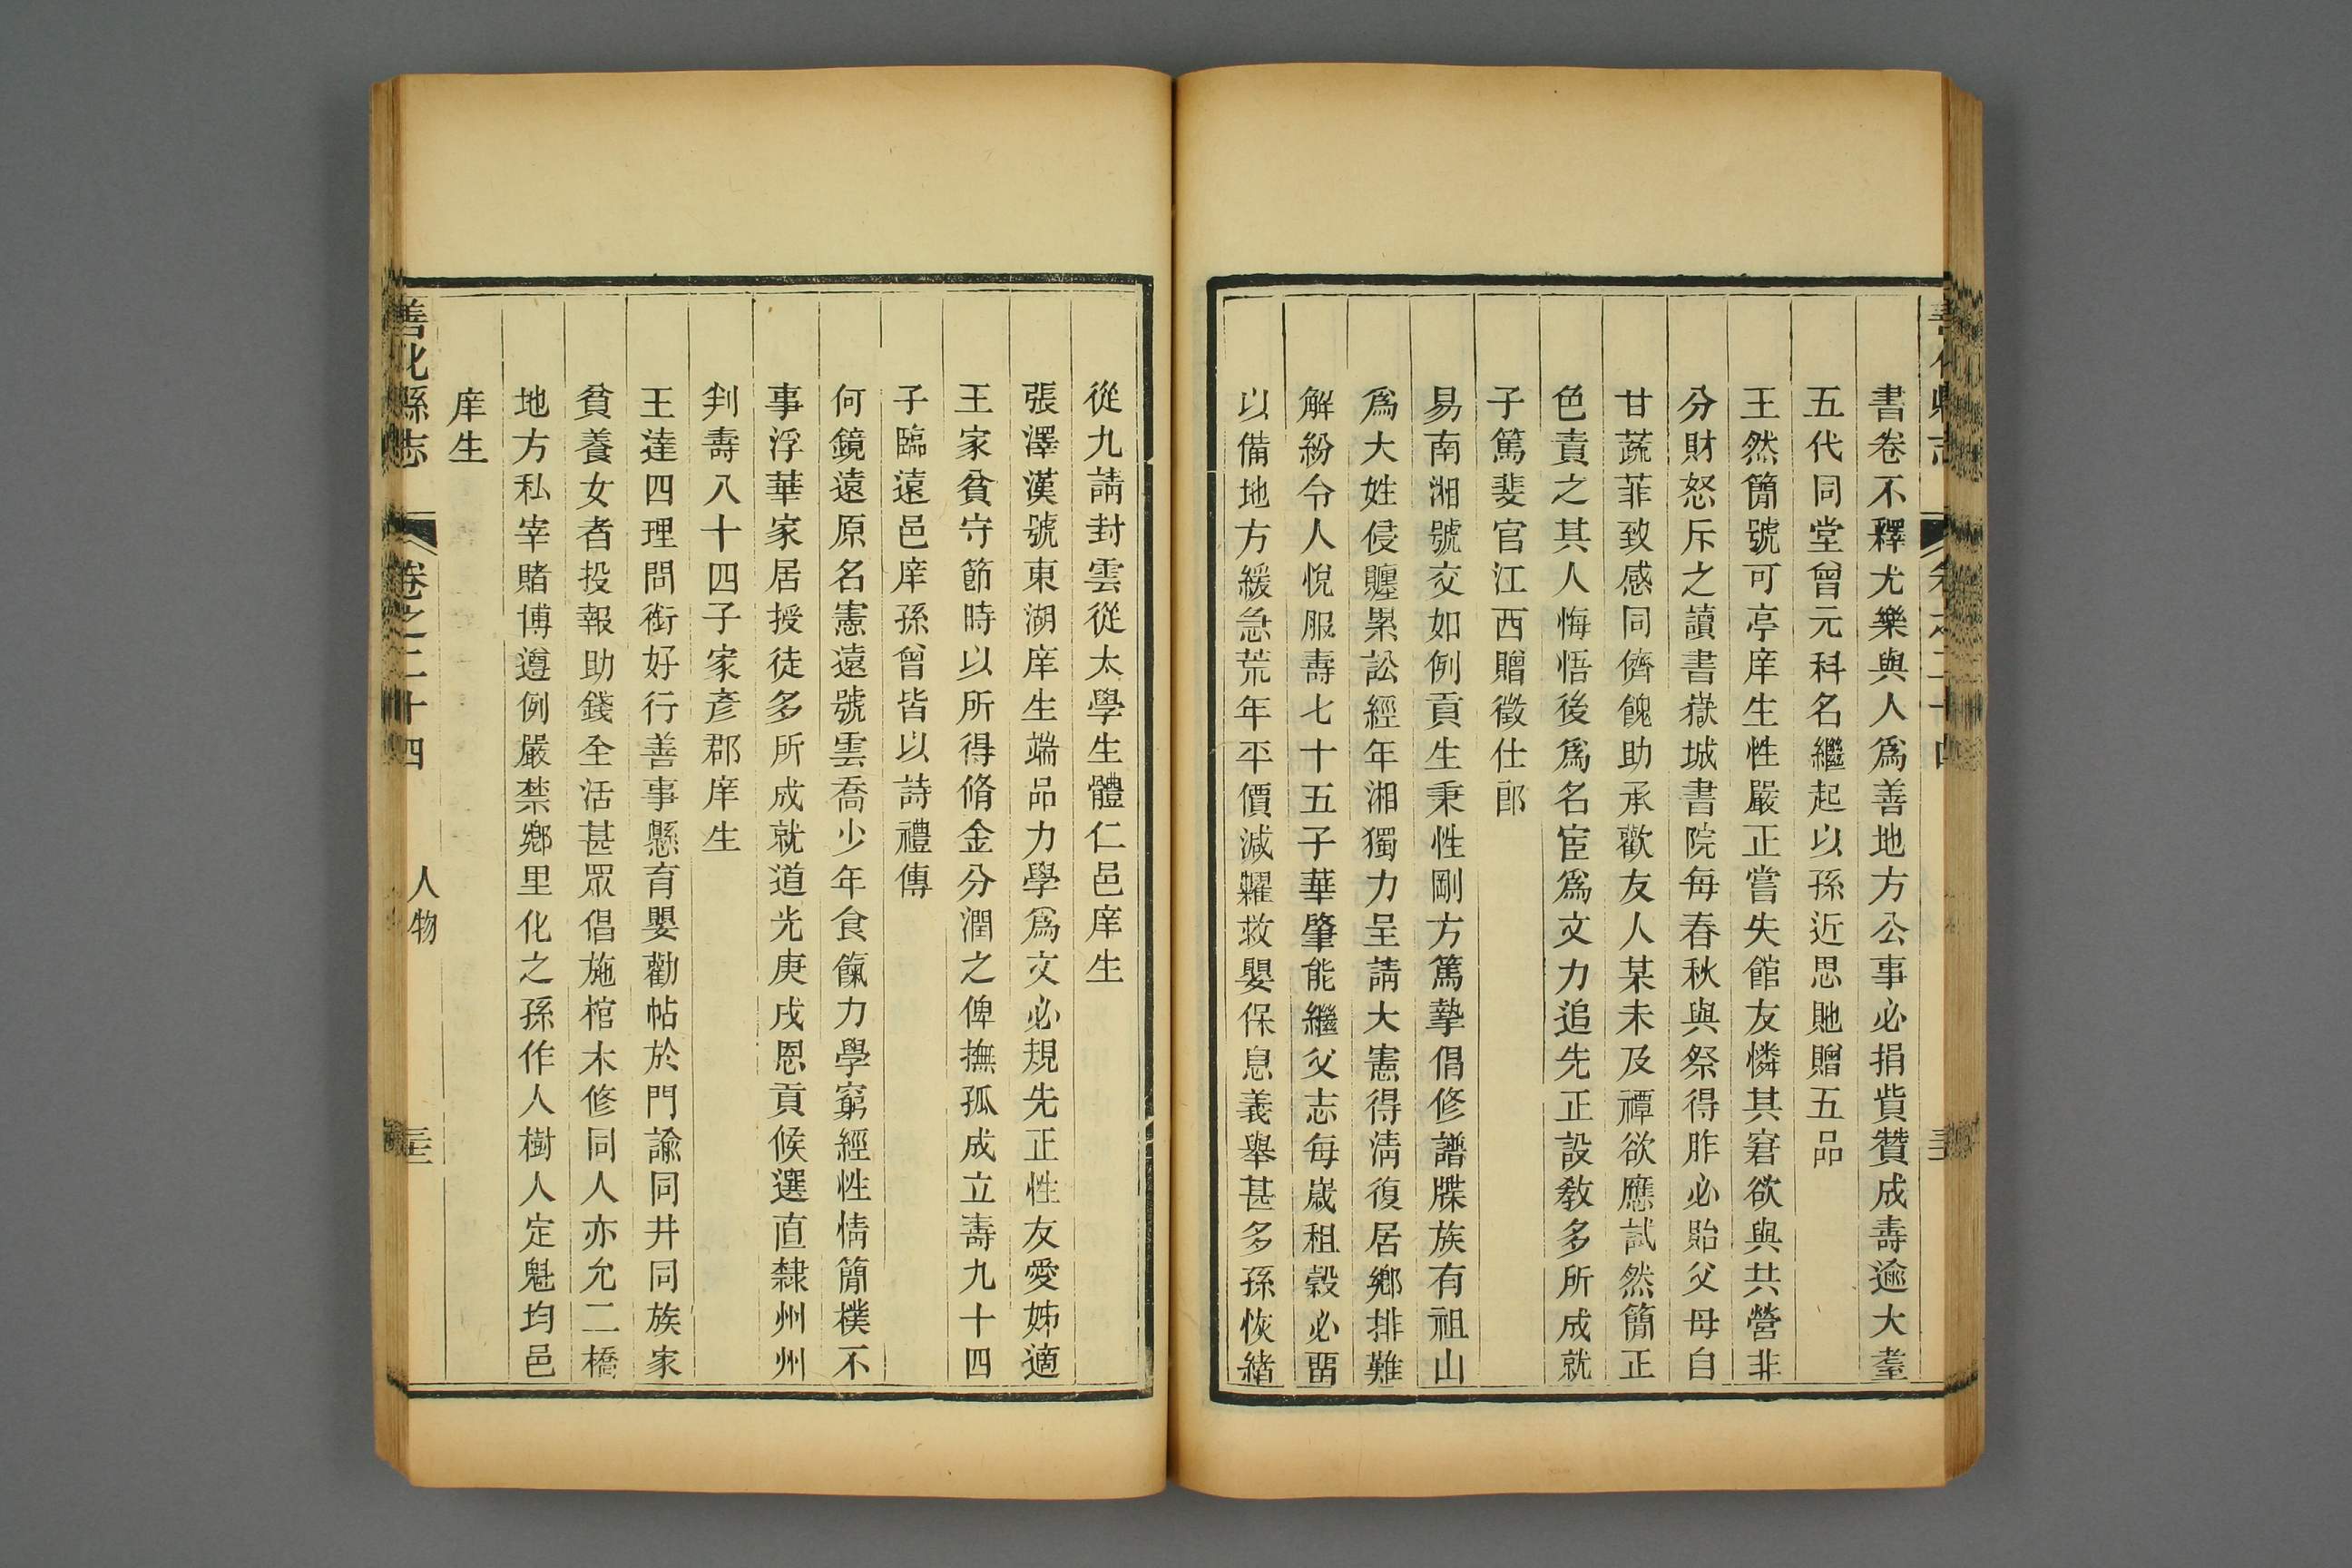 書卷不釋尤樂與人爲善地方公事必捐貲贊成壽逾大耋
五代同堂曾元科名繼起以孫近思貤贈五品
王然簡號可亭庠生性嚴正嘗失館友憐其窘欲與共營非
分財怒斥之讀書嶽城書院每春秋與祭得胙必貽父母自
甘蔬菲致感同儕餽助承歡友人某未及禫欲應試然簡正
色責之其人悔悟後爲名宦爲文力追先正設敎多所成就
子篤斐官江西贈徵仕郎
易南湘號交如例貢生秉性剛方篤摯倡修譜牒族有祖山
爲大姓侵贉累訟經年湘獨力呈請大憲得淸復居鄕排難
解紛令人悅服壽七十五子華肇能繼父志每歲租穀必畱
以備地方緩急荒年平價減糶救嬰保息義舉甚多孫恢緖
從九請封雲從太學生體仁邑庠生
張澤漢號東湖庠生端品力學爲文必規先正性友愛姊適
王家貧守節時以所得脩金分潤之俾撫孤成立壽九十四
子臨遠邑庠孫曾皆以詩禮傳
何鏡遠原名憲遠號雲喬少年食餼力學窮經性情簡樸不
事浮華家居授徒多所成就道光庚戌恩貢候選直隸州州
判壽八十四子家彥郡庠生
王達四理問銜好行善事懸育嬰勸帖於門諭同井同族家
貧養女者投報助錢全活甚眾倡施棺木修同人亦允二橋
地方私宰賭博遵例嚴禁鄕里化之孫作人樹人定魁均邑
庠生
善化縣志 卷之二十四 人物